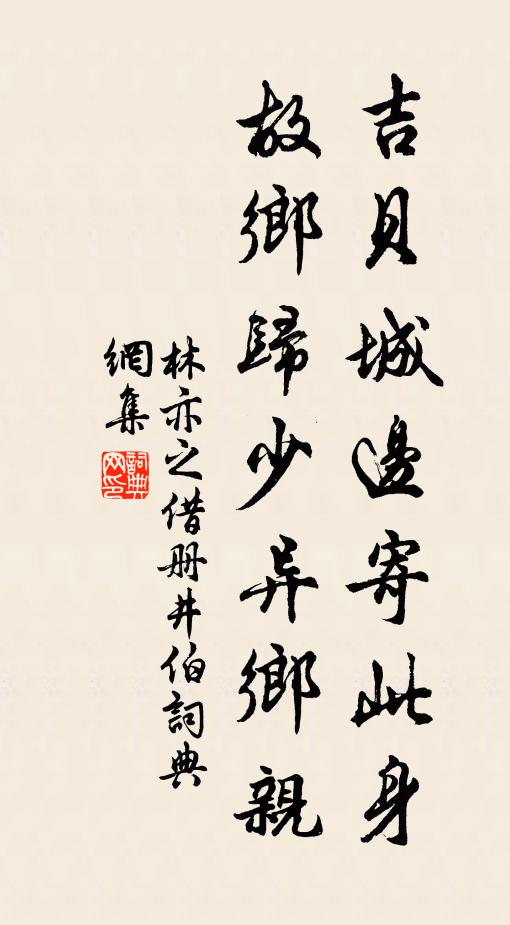 吉貝城邊寄此身
故鄉歸少异鄉親
林亦之借册井伯詞典
網集
詞典網印